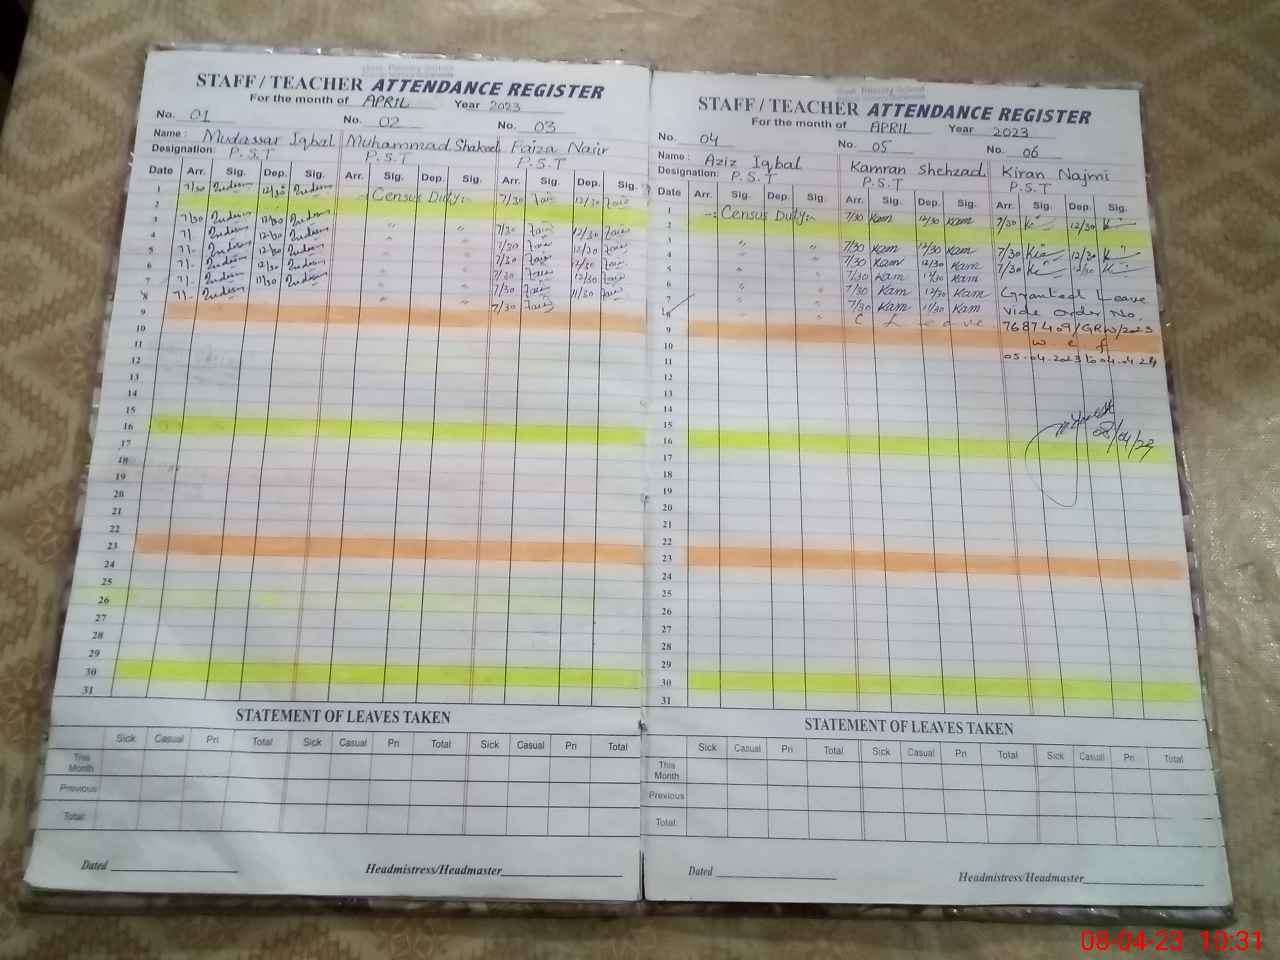 STAFF / TEACHER ATTENDANCE REGISTER
For the month of APRIL Year 2023
No. 01 No. 02 No. 03
Name: Mudassar Iqbal Muhammad Shakeel Faiza Nasir
Designation: P.S.T P.S.T P.S.T
Date Arr. Sig. Dep. Sig. Arr. Sig. Dep. Sig. Arr. Sig. Dep. Sig.
1 7/30 12/30 Census Duty:- 7/30 12/30
2
3 7/30 12/30 " " 7/30 12/30
4 12/30 " " 7/30 12/30
5 12/30 " " 7/30 12/30
6 12/30 " " 7/30 12/30
7 11/30 " " 7/30 11/30
8 7/30
9
10
11
12
13
14
15
16
17
18
19
20
21
22
23
24
25
26
27
28
29
30
31
STATEMENT OF LEAVES TAKEN
Sick Casual Pri Total Sick Casual Pri Total Sick Casual Pri Total
This Month
Previous
Total
Dated Headmistress/Headmaster
STAFF / TEACHER ATTENDANCE REGISTER
For the month of APRIL Year 2023
No. 04 No. 05 No. 06
Name: Aziz Iqbal Kamran Shehzad Kiran Najmi
Designation: P.S.T P.S.T P.S.T
Date Arr. Sig. Dep. Sig. Arr. Sig. Dep. Sig. Arr. Sig. Dep. Sig.
1 -: Census Duty:- 7/30 Kam 12/30 Kam 7/30 Ki 12/30 K
2
3 " " 7/30 Kam 12/30 Kam 7/30 Ki 12/30 K
4 " " 7/30 Kam 12/30 Kam 7/30 Ki 12/30 K
5 " " 7/30 Kam 12/30 Kam
6 " " 7/30 Kam 12/30 Kam Granted Leave
7 " " 7/30 Kam 11/30 Kam vide order No.
8 C Leave 7687409/GRW/2023
9 w.e.f
10 05.04.2023 to 04.04.24
11
12
13
14
15
16 08/04/23
17
18
19
20
21
22
23
24
25
26
27
28
29
30
31
STATEMENT OF LEAVES TAKEN
Sick Casual Pri Total Sick Casual Pri Total Sick Casual Pri Total
This Month
Previous
Total
Dated Headmistress/Headmaster
08-04-23 10:31